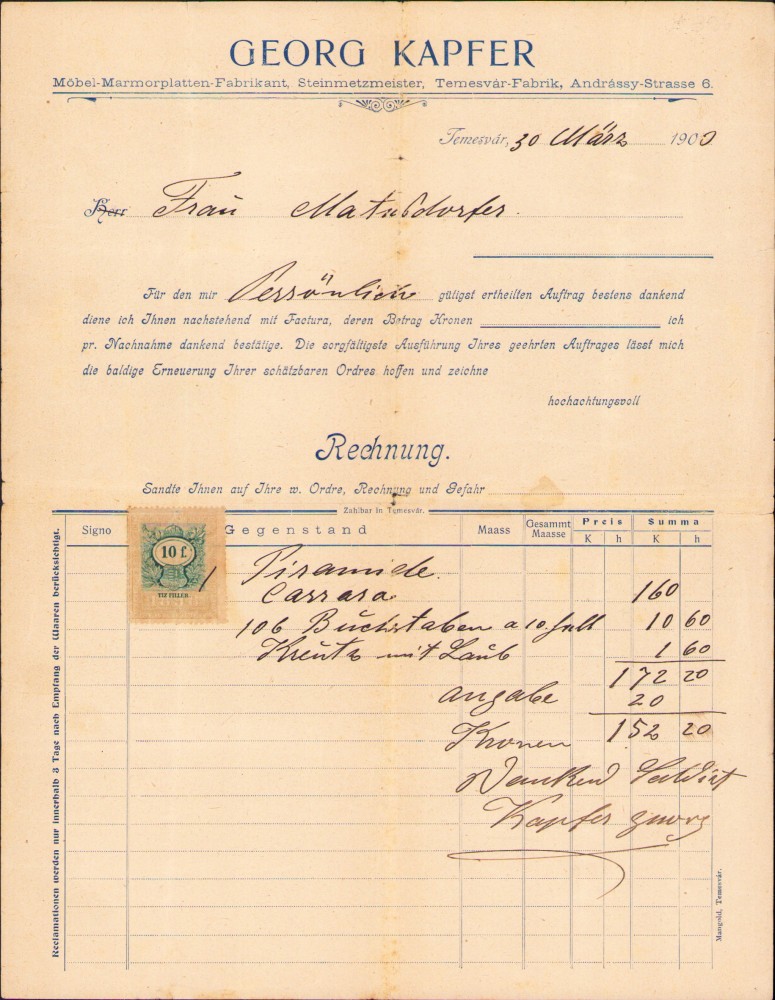 GEORG KAPFER
Möbel-Marmorplatten-Fabrikant, Steinmetzmeister, Temesvár-Fabrik, Andrássy-Strasse 6.
Temesvár, 30 März 1900
Herr Frau
Für den mir Persönlich gütigst ertheilten Auftrag bestens dankend
diene ich Ihnen nachstehend mit Factura, deren Betrag Kronen ich
pr. Nachnahme dankend bestätige. Die sorgfältigste Ausführung Ihres geehrten Auftrages lässt mich
die baldige Erneuerung Ihrer schätzbaren Ordres hoffen und zeichne
hochachtungsvoll
Rechnung.
Sandte Ihnen auf Ihre w. Ordre, Rechnung und Gefahr
Zahlbar in Temesvár.
Signo Gegenstand Maass Gesammt Maasse Preis K h Summa K h
10 f.
TIZ FILLÉR
1 Piramide
Carrara 160
106 Buchstaben a 10 10 60
Kreutz mit Laub 1 60
172 20
Angabe 20
Kronen 152 20
Dankend Saldirt
Kapfer Georg
Reclamationen werden nur innerhalb 3 Tage nach Empfang der Waaren berücksichtigt.
Mangold, Temesvár.